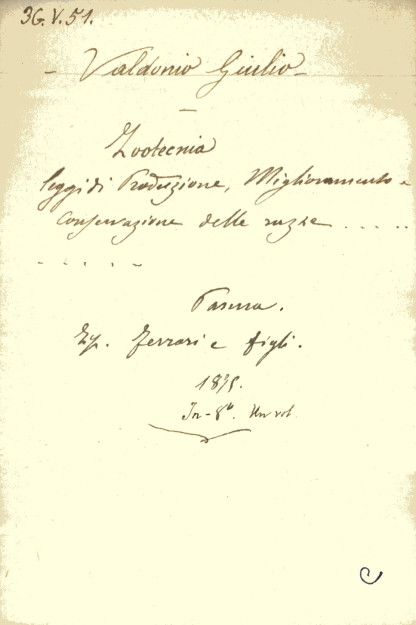 36.V.51.
- Valdonio Giulio -
Zootecnia
leggi di Produzione, Miglioramento e
Conservazione delle razze .....
.....
Parma.
Tip. Ferrari e figli.
In-8º. Un vol.